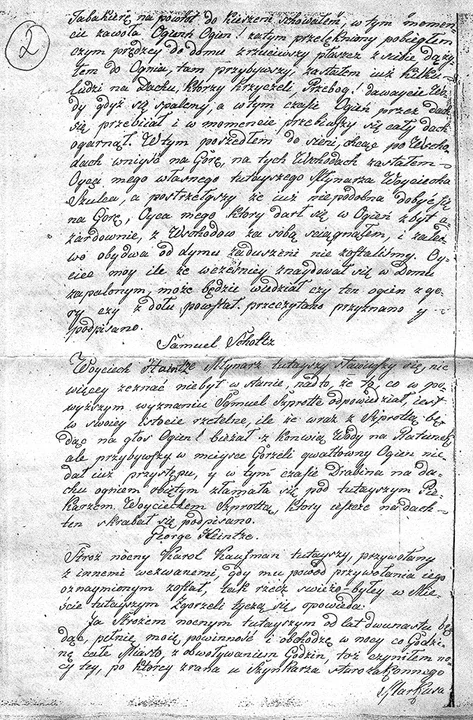 2
Tabakierę na powrót do kieszeni schowałem, w tym momen-
cie zawoła Ogień Ogień! zatym przelękniony pobiegłem
czym prędzey do domu zrzuciwszy płaszcz z siebie dąży-
łem do Ognia, tam przybywszy, zastałem iuż kilku
ludzi na Dachu, którzy krzyczeli, Przebog! dawaycie Wo-
dy gdyż się spalemy, a w tym czasie Ogień przez dach
się przebiiał i w momencie przekaszy się cały dach
ogarnął. W tym poszedłem do sieni, chcąc po Wscho-
dach wniyść na Górę, na tych Wschodach zastałem
Oyca mego własnego tutayszego Młynarza Woyciecha
Szulca, a postrzegłszy że iuż niepodobna dobyć się
na Górę, Oyca mego który darł się w Ogień zbyt a-
żardownie, z Wschodow za sobą sciągnąłem, i zale-
wo obydwa od dymu zaduszeni nie zostalismy. Oy-
ciec moy ile że wcześniey znaydował się w Domu
zapalonym, może będzie wiedział czy ten ogień z gó-
ry czy z dołu powstał. przeczytano przyznano y
podpisano.
Samuel Scholtz
Woyciech Haintze Młynarz tutayszy stawaszy się, nic
więcey zeznać nie był w stanie, nadto, że to, co w po-
wyższym wyznaniu Samuel Szprotte odpowiedział, iest
w swoiey istocie rzetelne, ile że wraz z Szprottą bę-
dąc na głos Ogień! bieżał z konwią Wody na Ratunek
ale przybywszy w mieysce Gorzeli gwałtowny Ogień nie
dał iuż przystępu, y w tym czasie Drabina na da-
chu ogniem obiętym złamała się pod tutayszym Pie-
karzem Woyciechem Szprottą, który ieszcze na dach
ten skrabał się podpisano.
George Heintze.
Stroż nocny Karol Kaufman tutayszy, przywołany
z innemi wezwanemi, gdy mu powód przywołania iego
oznaymionym został, tak rzecz swieżo-byłey w Mie-
ście tutayszym Zgorzeli tyczą się, opowieda.
Ja Stróżem nocnym tutayszym od lat dwunastu bę-
dąc, pełnię moią powinność i obchodzę w nocy co Godzi-
nę całe Miasto, z obwoływaniem Godzin, toż czyniłem no-
cy tey, po ktorey z rana u szynkarza starozakonnego
Markusa